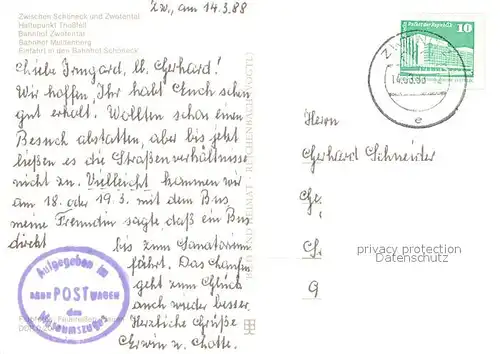 Zw., am 14.3.88
Zwischen Schöneck und Zwotental
Haltepunkt Thoßfell
Bahnhof Zwotental
Bahnhof Muldenberg
Einfahrt in den Bahnhof Schöneck
Liebe Irmgard, lb. Gerhard!
Wir hoffen, Ihr habt Euch schon
gut erholt. Wollten schon einen
Besuch abstatten, aber bis jetzt
ließen es die Straßenverhältnisse
nicht zu. Vielleicht kommen wir
am 18. oder 19.3. mit dem Bus
meine Freundin sagte, daß ein Bus
direkt bis zum Sanatorium
fährt. Das Laufen
geht zum Glück
auch wieder besser.
Herzliche Grüße
Erwin u. Lotte.
Aufgegeben im
POSTWAGEN
des
Museumszuges
BILD UND HEIMAT REICHENBACH (VOGTL)
10
14.03.88
e
Herrn
Gerhard Schneider
privacy protection
Datenschutz
9